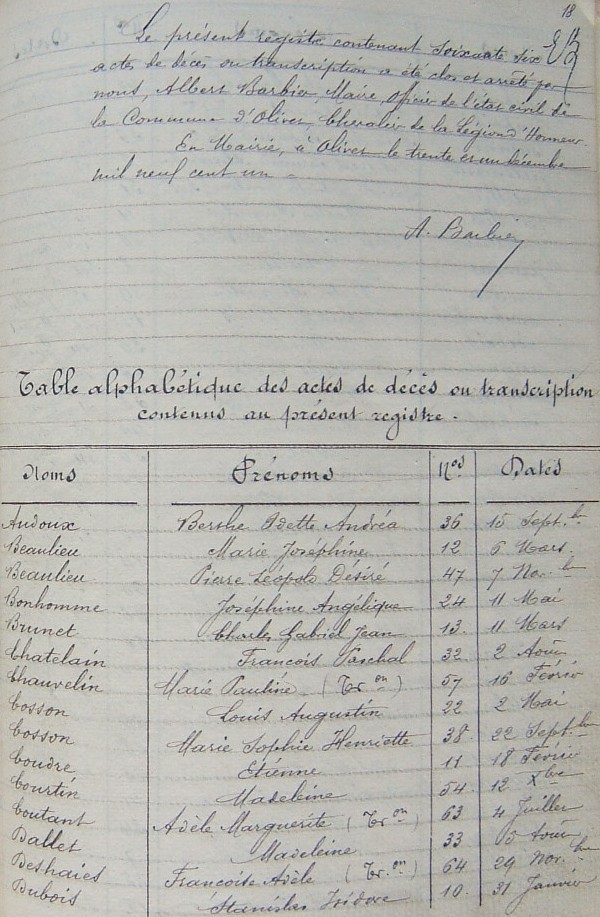 18
Le présent registre contenant soixante six
actes de décès ou transcription a été clos et arrêté par
nous, Albert Barbier, Maire, officier de l'état civil de
la Commune d'Olivet, Chevalier de la Légion d'Honneur.
En Mairie, à Olivet le trente et un décembre
mil neuf cent un -
A. Barbier
Table alphabétique des actes de décès ou transcription
contenus au présent registre.
Noms Prénoms Nos Dates
Audoux Berthe Odette Andréa 36 15 Sept.bre
Beaulieu Marie Joséphine 12 6 Mars.
Beaulieu Pierre Léopold Désiré 47 7 Nov.bre
Bonhomme Joséphine Angélique 24 11 Mai
Brunet Charles Gabriel Jean 13. 11 Mars
Chatelain François Paschal 32. 2 Août
Chauvelin Marie Pauline. (Tr on) 57 16 Février
Cosson Louis Augustin 22 2 Mai
Cosson Marie Sophie Henriette 38. 22 Sept.bre
Coudre Etienne 11 18 Février
Courtin Madeleine 54. 12 Xbre
Coutant Adèle Marguerite (Tr on) 63 4 Juillet
Dallet Madeleine 33 15 Août
Deshaies Françoise Adèle (Tr. on) 64 29 Nov.bre
Dubois Stanislas Isidore 10. 31 Janvier